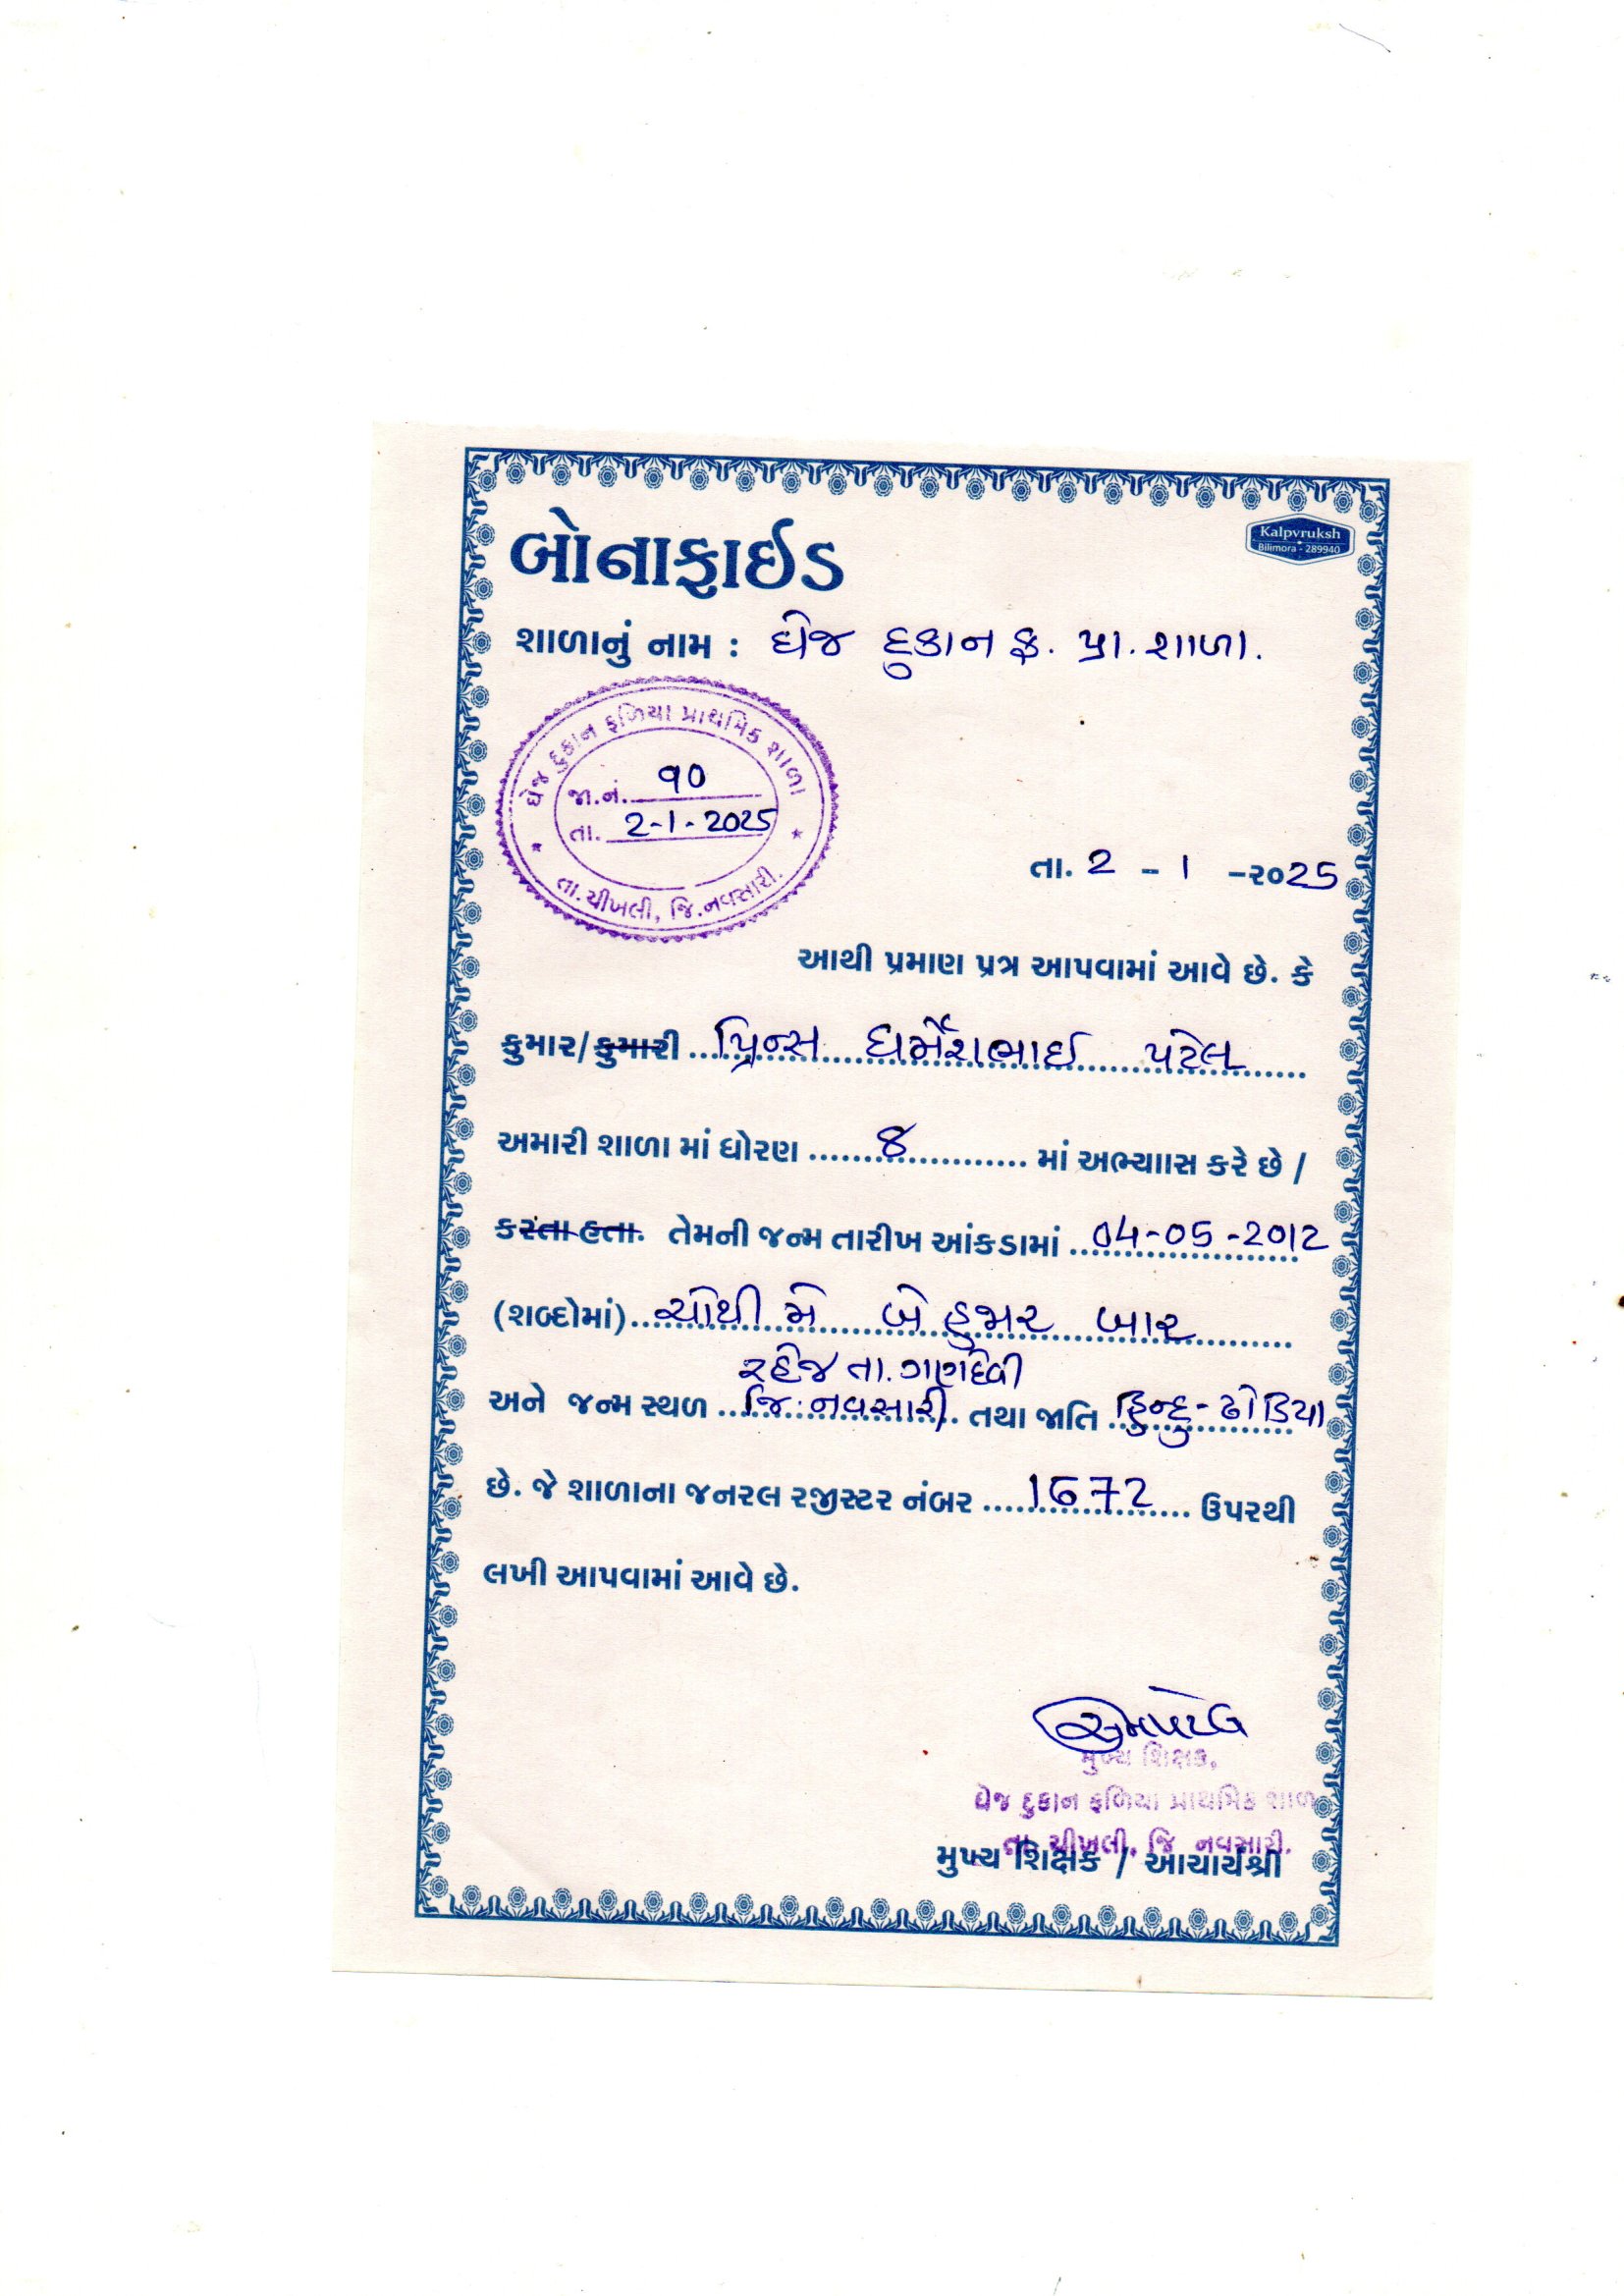 બોનાફાઈડ
Kalpvruksh
Bilimora - 289940
શાળાનું નામ : ઘેજ દુકાન ફ. પ્રા. શાળા.
ઘેજ દુકાન ફળિયા પ્રાથમિક શાળા
જા.નં. ૧૦
તા. 2-1-2025
તા. ચીખલી, જિ. નવસારી.
તા. 2 - 1 -૨૦25
આથી પ્રમાણ પ્રત્ર આપવામાં આવે છે. કે
કુમાર/કુમારી ........ પ્રિન્સ ધર્મેશભાઈ પટેલ ........
અમારી શાળા માં ધોરણ ........ 8 ........ માં અભ્યાાસ કરે છે /
કરતા હતા. તેમની જન્મ તારીખ આંકડામાં ........ 04-05-2012
(શબ્દોમાં) ........ ચોથી મે બે હજાર બાર ........
રહેજ તા. ગણદેવી
અને જન્મ સ્થળ ........ જિ. નવસારી ........ તથા જાતિ ........ હિન્દુ - ઢોડિયા
છે. જે શાળાના જનરલ રજીસ્ટર નંબર ........ 1672 ........ ઉપરથી
લખી આપવામાં આવે છે.
મુખ્ય શિક્ષક,
ઘેજ દુકાન ફળિયા પ્રાથમિક શાળ
તા. ચીખલી, જિ નવસારી.
મુખ્ય શિક્ષક / આચાર્યશ્રી